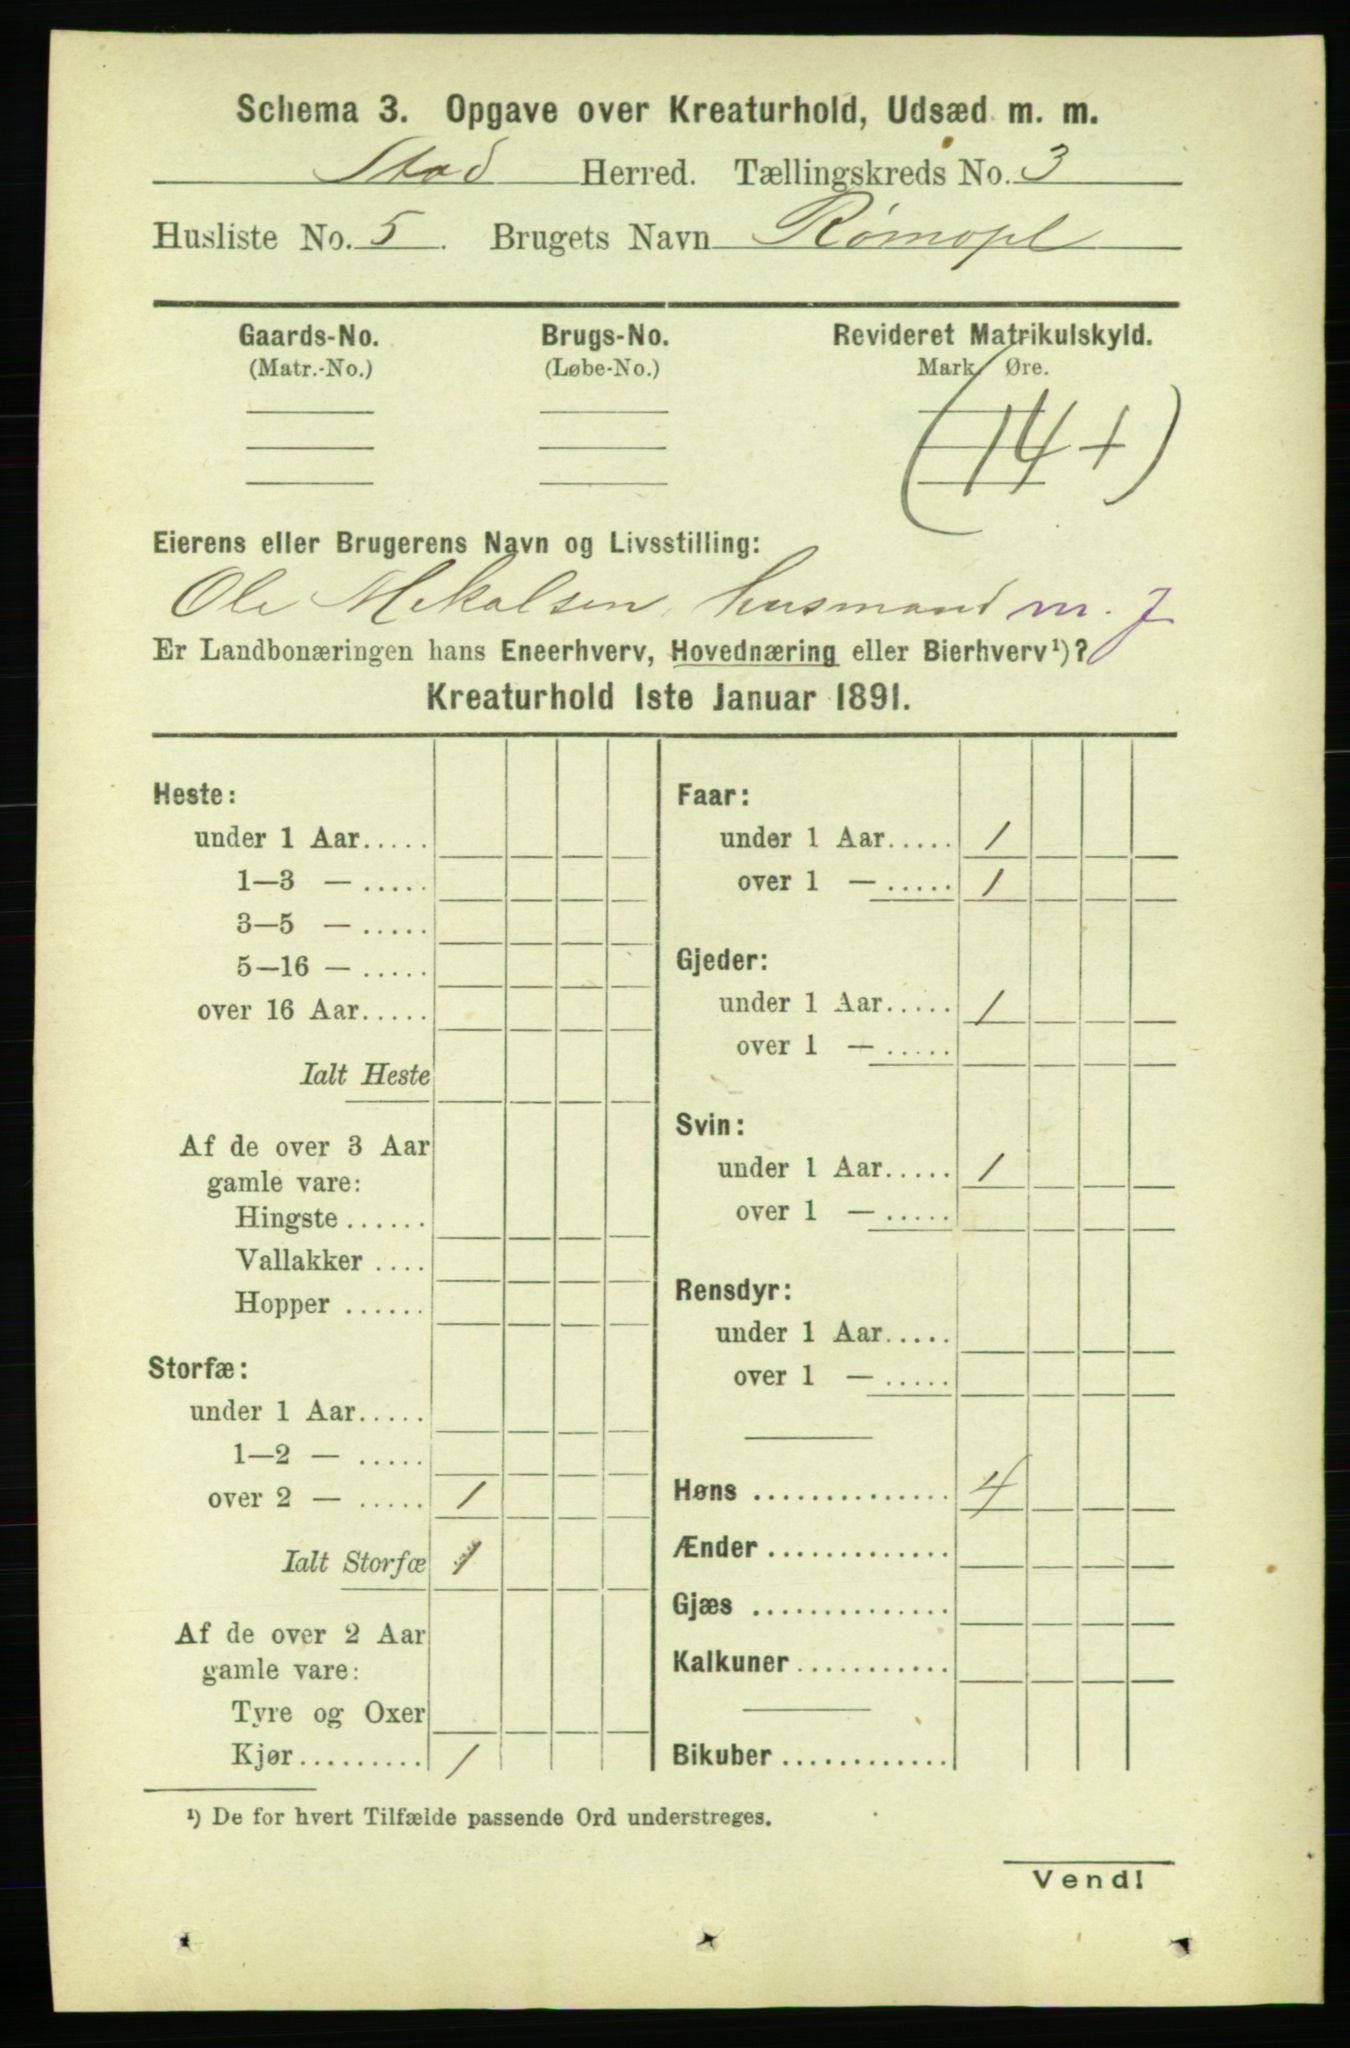 Schema 3. Opgave over Kreaturhold, Udsæd m. m.
Stod Herred. Tællingskreds No. 3
Husliste No. 5. Brugets Navn Rømopl
Gaards-No. Brugs-No. Revideret Matrikulskyld.
(Matr.-No.) (Løbe-No.) Mark. Øre.
(14+)
Eierens eller Brugerens Navn og Livsstilling:
Ole Mekalsen, husmand m. J
Er Landbonæringen hans Eneerhverv, Hovednæring eller Bierhverv¹)?
Kreaturhold 1ste Januar 1891.
Heste:
under 1 Aar.....
1—3 — .....
3—5 — .....
5—16 — .....
over 16 Aar.....
Ialt Heste
Af de over 3 Aar
gamle vare:
Hingste ......
Vallakker ....
Hopper ......
Storfæ:
under 1 Aar.....
1—2 — .....
over 2 — ..... 1
Ialt Storfæ 1
Af de over 2 Aar
gamle vare:
Tyre og Oxer
Kjør......... 1
Faar:
under 1 Aar..... 1
over 1 — ..... 1
Gjeder:
under 1 Aar..... 1
over 1 — .....
Svin:
under 1 Aar..... 1
over 1 — .....
Rensdyr:
under 1 Aar.....
over 1 — .....
Høns .............. 4
Ænder .............
Gjæs ..............
Kalkuner...........
Bikuber ............
¹) De for hvert Tilfælde passende Ord understreges.
Vend!